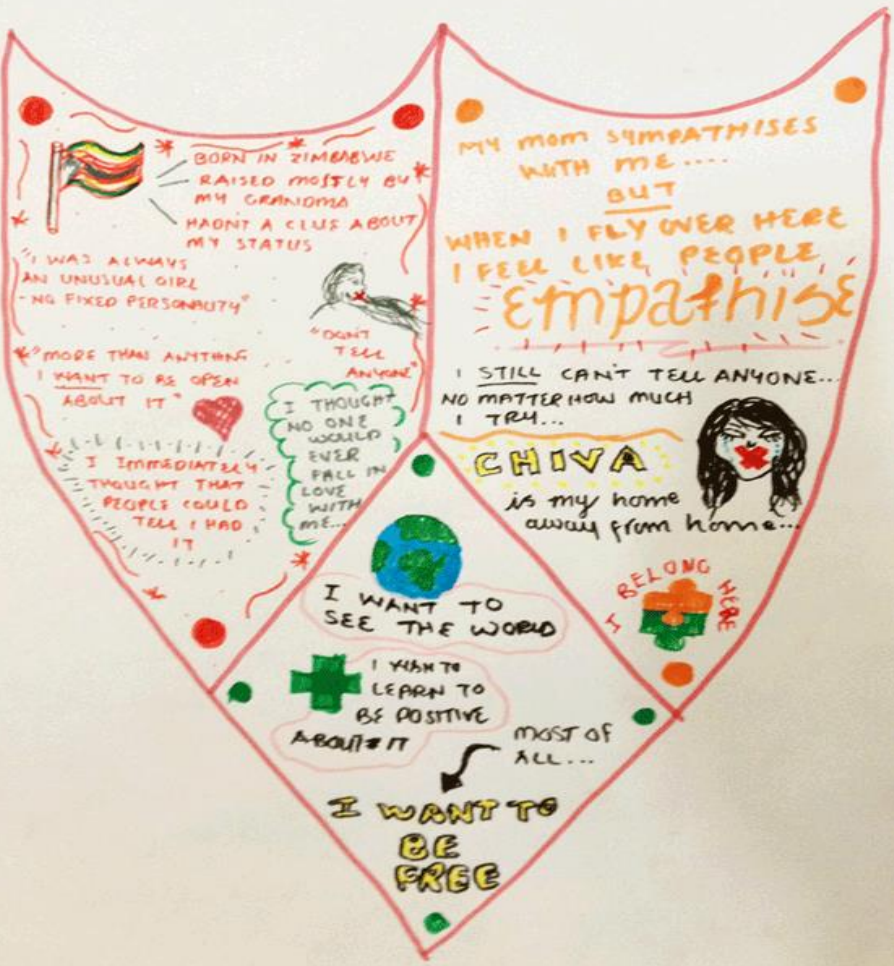 BORN IN ZIMBABWE
RAISED MOSTLY BY
MY GRANDMA
HADNT A CLUE ABOUT
MY STATUS
"I WAS ALWAYS
AN UNUSUAL GIRL
- NO FIXED PERSONALITY"
"DON'T
TELL
ANYONE"
"MORE THAN ANYTHING
I WANT TO BE OPEN
ABOUT IT"
I THOUGHT
NO ONE
WOULD
EVER
FALL IN
LOVE
WITH
ME...
I IMMEDIATELY
THOUGHT THAT
PEOPLE COULD
TELL I HAD
IT
MY MOM SYMPATHISES
WITH ME....
BUT
WHEN I FLY OVER HERE
I FEEL LIKE PEOPLE
EMPATHISE
I STILL CAN'T TELL ANYONE...
NO MATTER HOW MUCH
I TRY...
CHIVA
is my home
away from home...
I BELONG HERE
I WANT TO
SEE THE WORLD
I WANT TO
LEARN TO
BE POSITIVE
ABOUT IT
MOST OF
ALL...
I WANT TO
BE
FREE